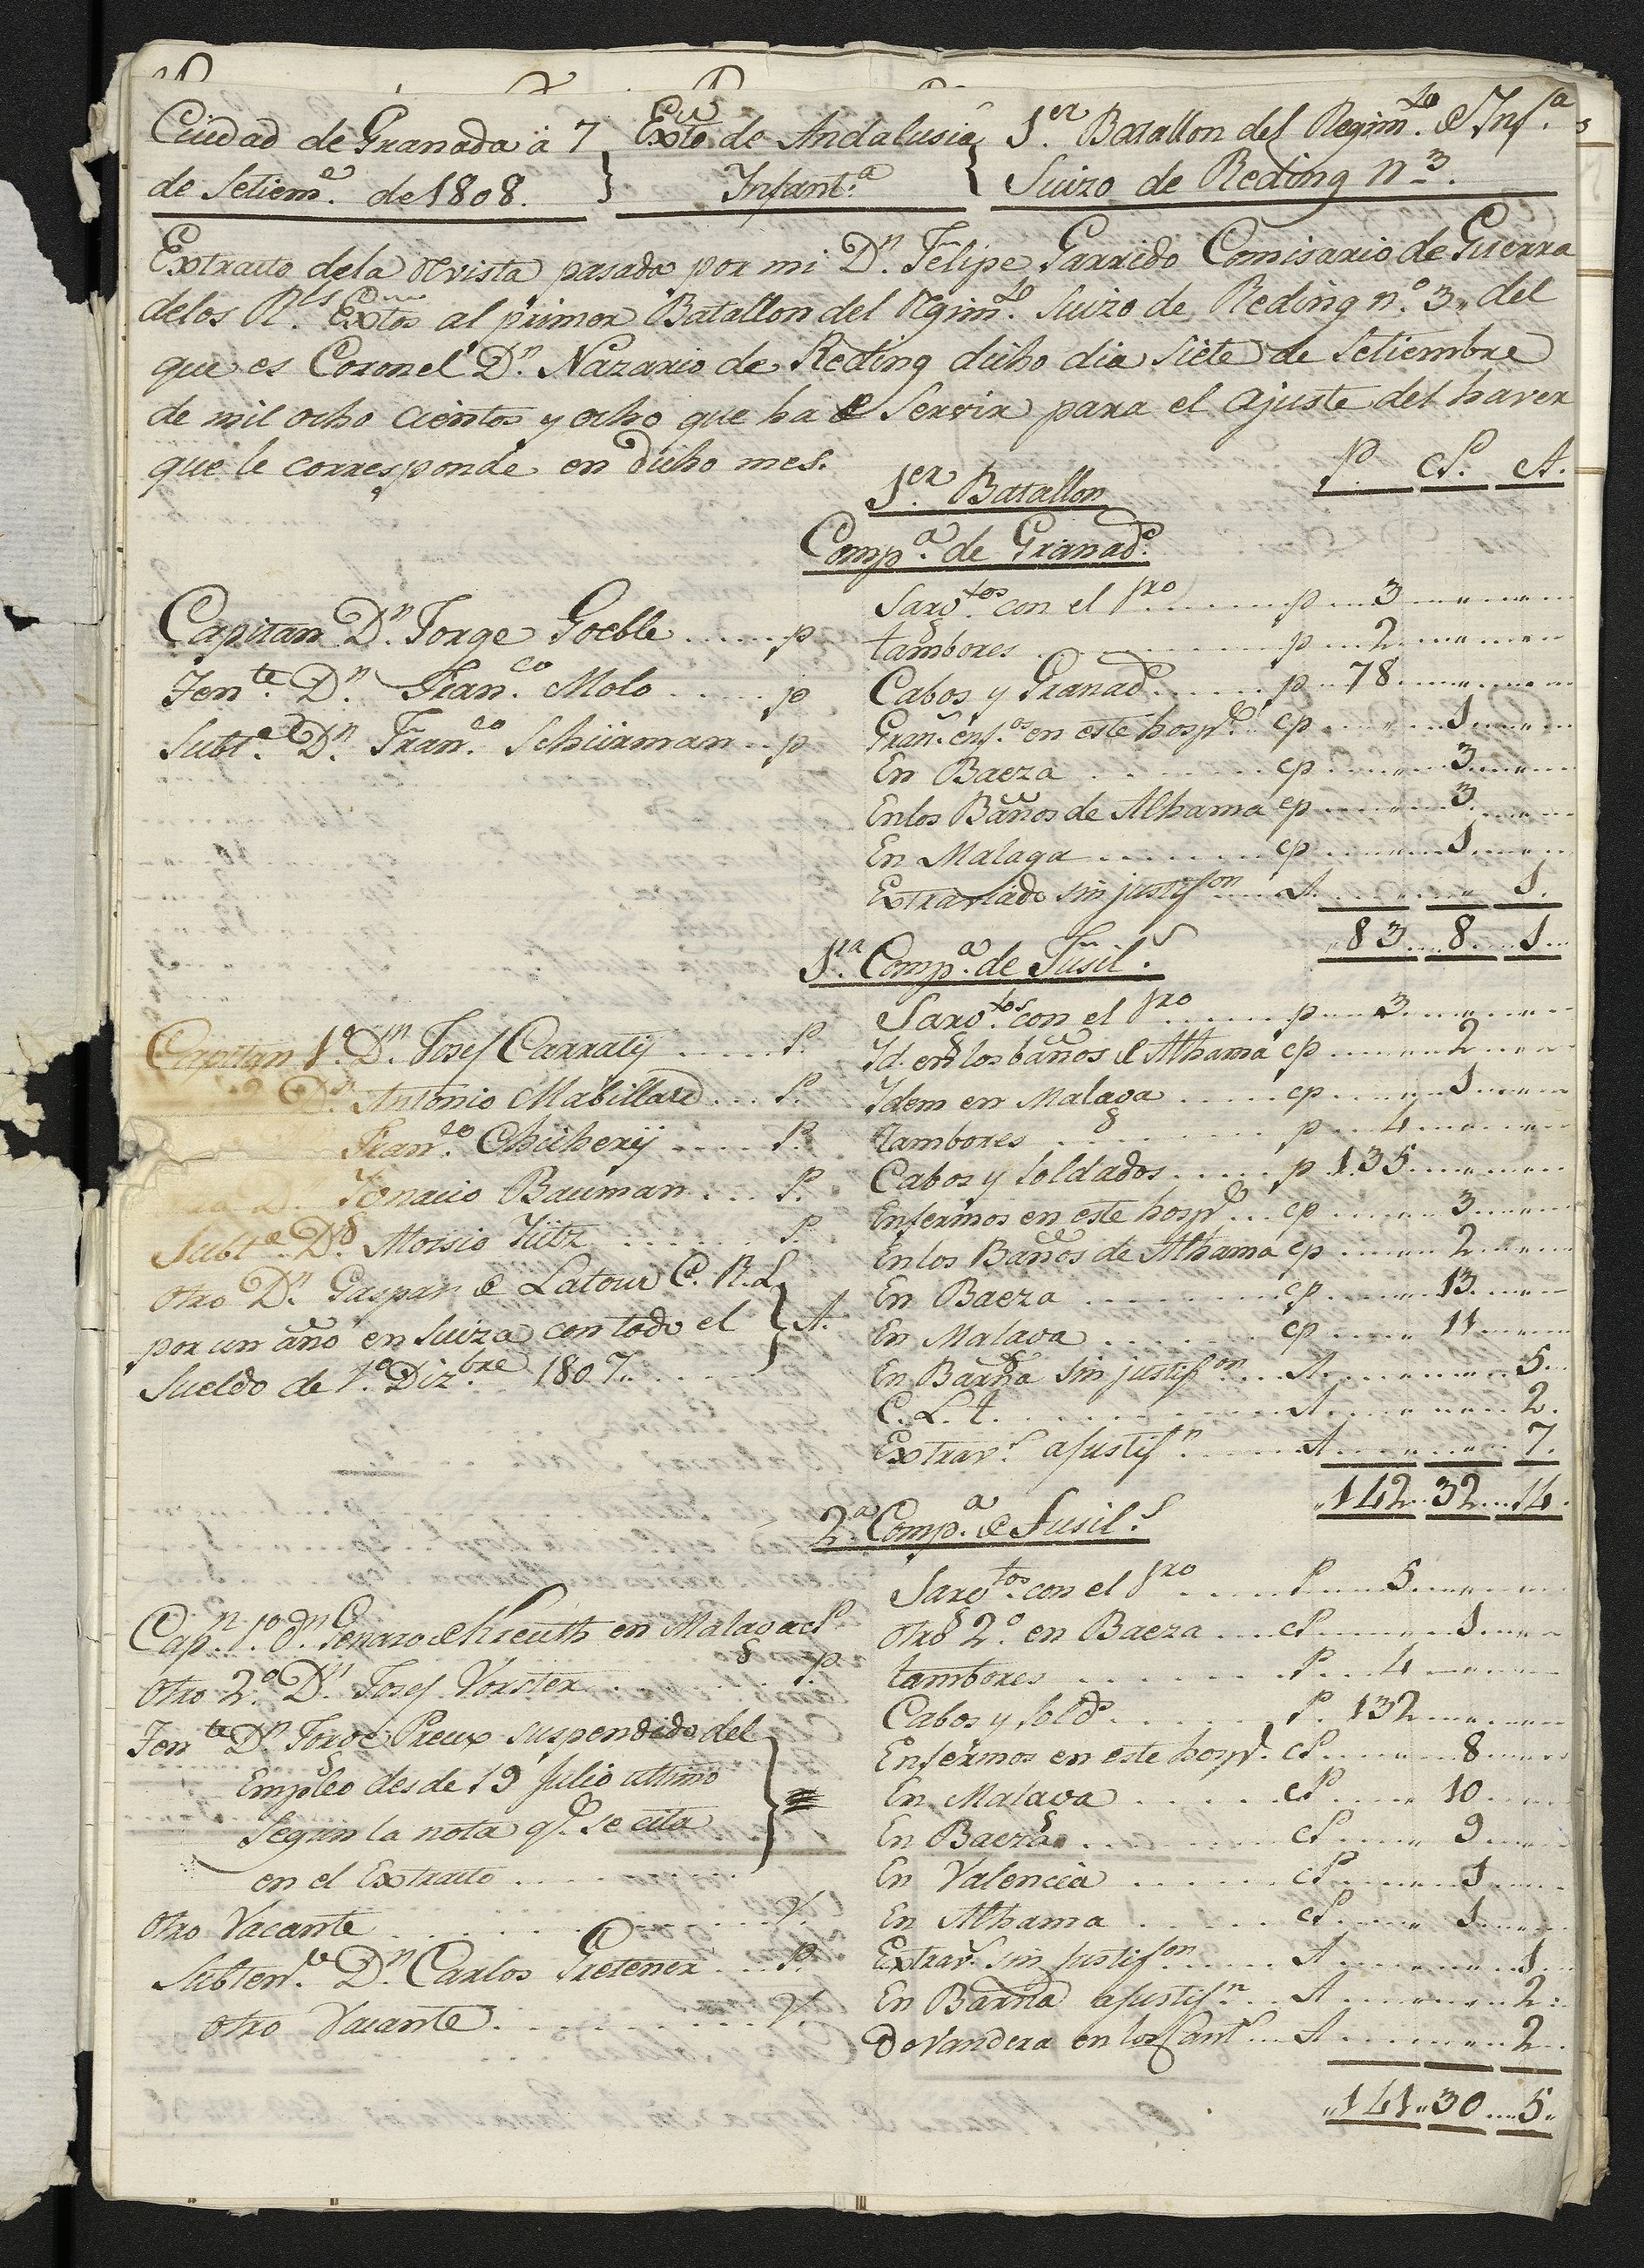 Ciudad de Granada à 7
de Setiem.e de 1808.
Exto de Andalusia
Infant.a
1.er Batallon del Regim.to de Inf.a
Suizo de Reding N.3.
Extracto dela revista pasada por mi D.n Felipe Garrido Comisario de Guerra
delos R.ls Extos al primer Batallon del Regim.to Suizo de Reding n.o 3,, del
que es Coronel D.n Nazario de Reding dicho dia siete de Setiembre
de mil ocho cientos y ocho que ha de Servir para el ajuste del haver
que le corresponde en dicho mes.
P. cP. A.
1.er Batallon
Comp.a de Granad.s
Capitan D.n Jorge Goeble ...... p
Ten.te D.n Fran.co Molo ..... p
Subt.e D.n Fran.co Schürman .. p
Sarg.tos con el 1.ro ...... p 3
tambores ...... p 2
Cabos y Granad.s ...... p 78
Gran.s enf.os en este hosp.l cp 1
En Baeza ...... cp 3
Enlos Baños de Alhama cp 3
En Malaga ...... cp 1
Extraviado sin justif.on ... A. 1.
83 8 1
1.a Comp.a de Fusil.s
Capitan 1.o D.n Josef Carratÿ ..... P.
2 D.n Antonio Mabillard ... P.
Fran.co Chicherÿ ..... P.
Ignacio Bauman ... P.
Subt.e D.n Aloisio Jütz ...... P.
otro D.n Gaspar de Latour C. R. L.
por un año en Suiza con todo el
Sueldo de 1.o Diz.bre 1807.
A.
Sarg.tos con el 1.ro ...... p 3
Id. en los baños de Alhama cp 2
Idem en Malaga ..... cp 1
tambores ...... p 4
Cabos y soldados ..... p 135
Enfermos en este hosp.l .. cp 3
Enlos Baños de Alhama cp 2
En Baeza ...... cp 13
En Malaga ...... cp 11
En Barña sin justif.on ... A. 5
C. L. t. ...... A 2.
Extrav.s a justif.n ..... A 7.
142 32 14.
2.a Comp.a de Fusil.s
Cap.n 1.o D.n Genaro de Kreuth en Malaga cP
otro 2.o D.n Josef Vorster ...... p.
Ten.te D.n Jorge Preux suspendido del
Empleo desde 19 Julio ultimo
Segun la nota q.e se cita
en el Extracto ....
otro Vacante ...... V.
Subten.te D.n Carlos Gretener ... P.
otro Vacante ...... V.
Sarg.tos con el 1.ro .... P 5
otro 2.o en Baeza ... cP 1
tambores ...... P. 4
Cabos y sold.s ...... P. 132
Enfermos en este hosp.l cP. 8
En Malaga ..... cP. 10
En Baeza ...... cP. 9
En Valencia ...... cP. 1
En Alhama ...... cP. 1
Extrav.s sin Justif.on .... A 1
En Barña a justif.n .. A 2
De Vandera en los Cant.s .. A 2
141 30 5